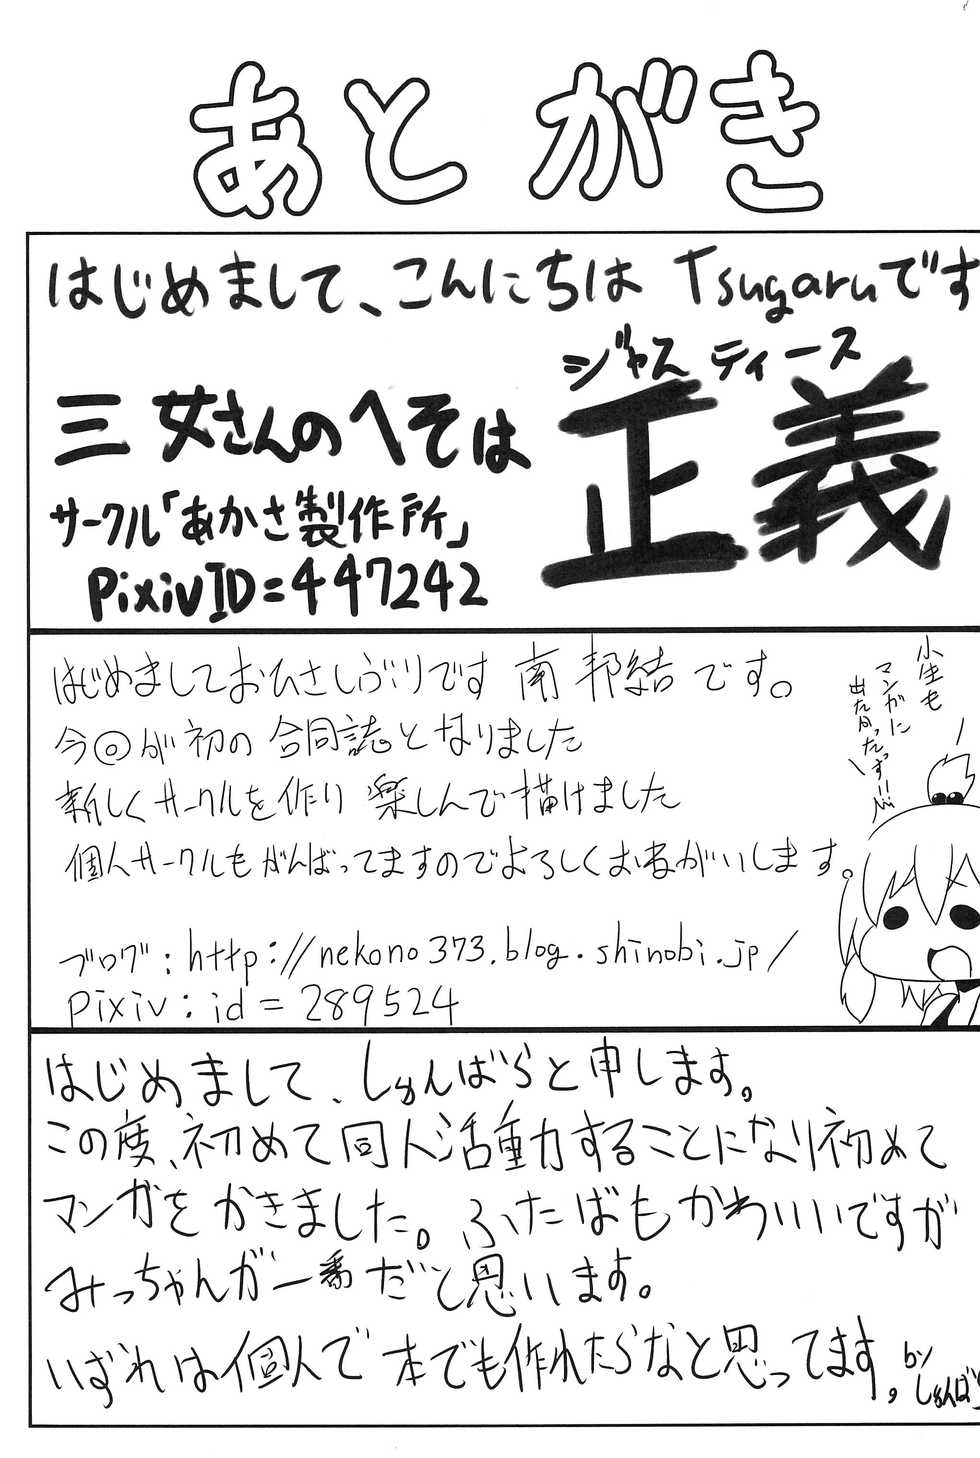 あとがき
はじめまして、こんにちは Tsugaruです
ジャスティース
三女さんのへそは正義
サークル「あかさ製作所」
Pixiv ID=447242
はじめましておひさしぶりです 南 邦結です。
今回が初の合同誌となりました
新しくサークルを作り 楽しんで描けました
個人サークルもがんばってますのでよろしくおねがいします。
ブログ:http://nekono373.blog.shinobi.jp/
pixiv:id=289524
小生も
マンガに
出たかったっす!!
はじめまして、しゅんばらと申します。
この度、初めて同人活動することになり初めて
マンガをかきました。ふたばもかわいいですが
みっちゃんが一番だと思います。
いずれは個人で本でも作れたらなと思ってます。
by
しゅんば